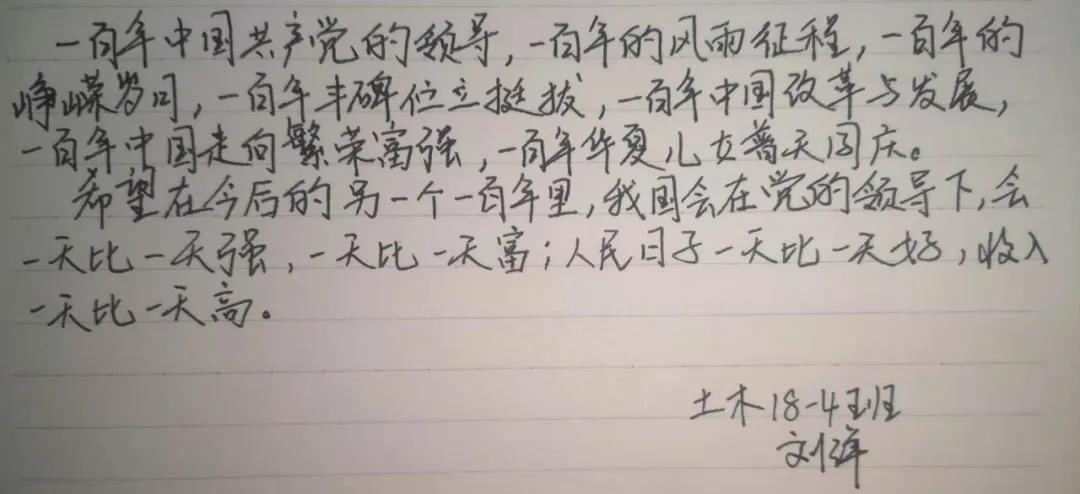 一百年中国共产党的领导，一百年的风雨征程，一百年的
峥嵘岁月，一百年丰碑位立挺拔，一百年中国改革与发展，
一百年中国走向繁荣富强，一百年华夏儿女普天同庆。
希望在今后的另一个一百年里，我国会在党的领导下，会
一天比一天强，一天比一天富；人民日子一天比一天好，收入
一天比一天高。
土木18-4班
刘洋